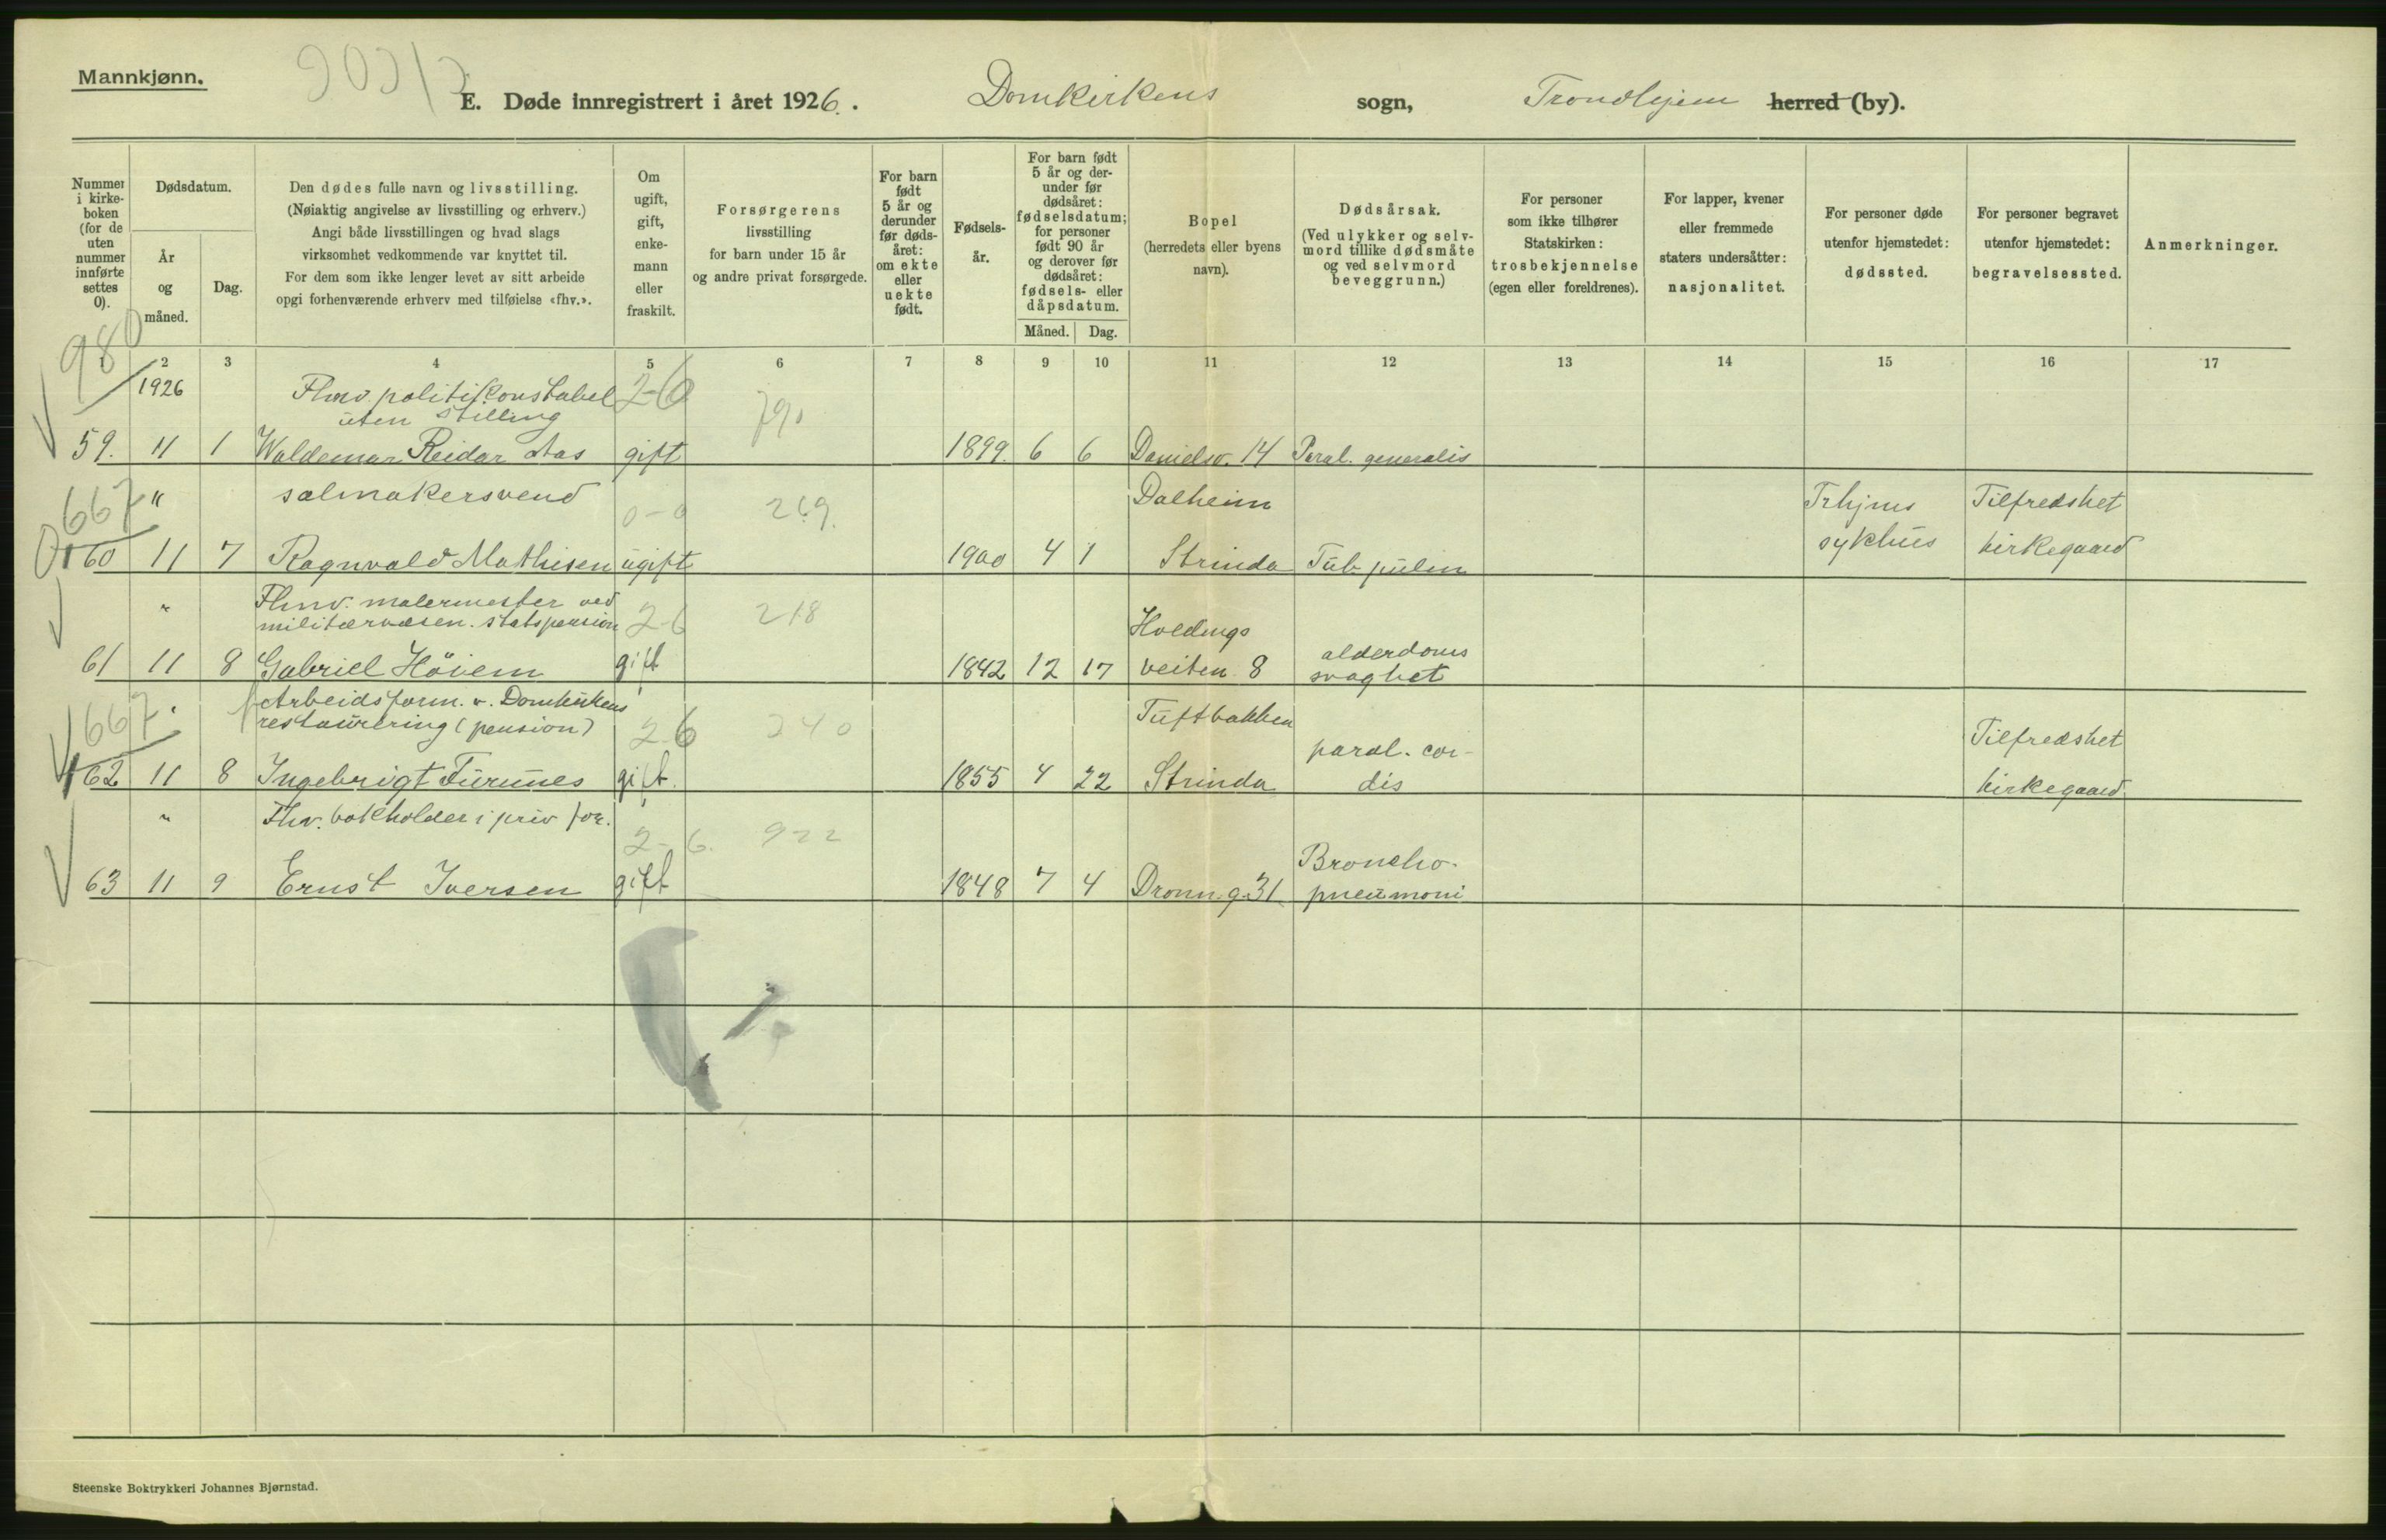 Mannkjønn.
E. Døde innregistrert i året 1926. Domkirkens sogn, Trondhjem herred (by).
Nummer i kirke-boken (for de uten nummer innførte settes 0).
Dødsdatum.
År og måned.
Dag.
Den dødes fulle navn og livsstilling.
(Nøiaktig angivelse av livsstilling og erhverv.)
Angi både livsstillingen og hvad slags
virksomhet vedkommende var knyttet til.
For dem som ikke lenger levet av sitt arbeide
opgi forhenværende erhverv med tilføielse «fhv.».
Om ugift, gift, enke-mann eller fraskilt.
Forsørgerens
livsstilling
for barn under 15 år
og andre privat forsørgede.
For barn født 5 år og derunder før døds-året: om ekte eller uekte født.
Fødsels-år.
For barn født 5 år og der-under før dødsåret: fødselsdatum; for personer født 90 år og derover før dødsåret: fødsels- eller dåpsdatum.
Måned. Dag.
Bopel
(herredets eller byens
navn).
Dødsårsak.
(Ved ulykker og selv-
mord tillike dødsmåte
og ved selvmord
beveggrunn.)
For personer
som ikke tilhører
Statskirken:
trosbekjennelse
(egen eller foreldrenes).
For lapper, kvener
eller fremmede
staters undersåtter:
nasjonalitet.
For personer døde
utenfor hjemstedet:
dødssted.
For personer begravet
utenfor hjemstedet:
begravelsessted.
Anmerkninger.
1 2 3 4 5 6 7 8 9 10 11 12 13 14 15 16 17
980
1926 Fhnv. politikonstabel 2-6
uten stilling 790
59. 11 1 Waldemar Reidar Aas gift 1899. 6 6 Danielsv. 14 Paral. generalis
667 " salmakersvend 0-0 269. Dalheim Trhjms Tilfredshet
60 11 7 Ragnvald Mathisen ugift 1900 4 1 Strinda Tub. pulm sykhus kirkegaard
" Fhnv. malermester ved
militærvæsen. statspension 2-6 218 Hvedings
61 11 8 Gabriel Höiem gift 1842 12 17 veiten 8 alderdoms
svaghet
667 " Arbeidsform. v. Domkirkens
restaurering (pension) 2-6 240 Tuftbakken Tilfredshet
62 11 8 Ingebrigt Furunes gift. 1855 4 22 Strinda paral. cor-
dis kirkegaard
" Fhv. bokholder i priv for. 2-6. 922
63 11 9 Ernst Iversen gift 1848 7 4 Dronn. g. 31. Broncho-
pneumoni
Steenske Boktrykkeri Johannes Bjørnstad.